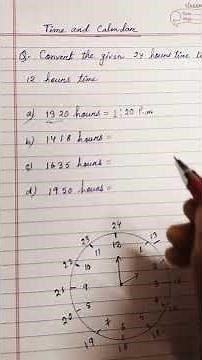 Time and Calendar
Q. Convert the given 24 hours time to
12 hours time
a) 1320 hours = 1:20 P.m
b) 1418 hours =
c) 1635 hours =
d) 1950 hours =
24
23 12 13
11 1
10
21 9
20 8
19 7 6
18